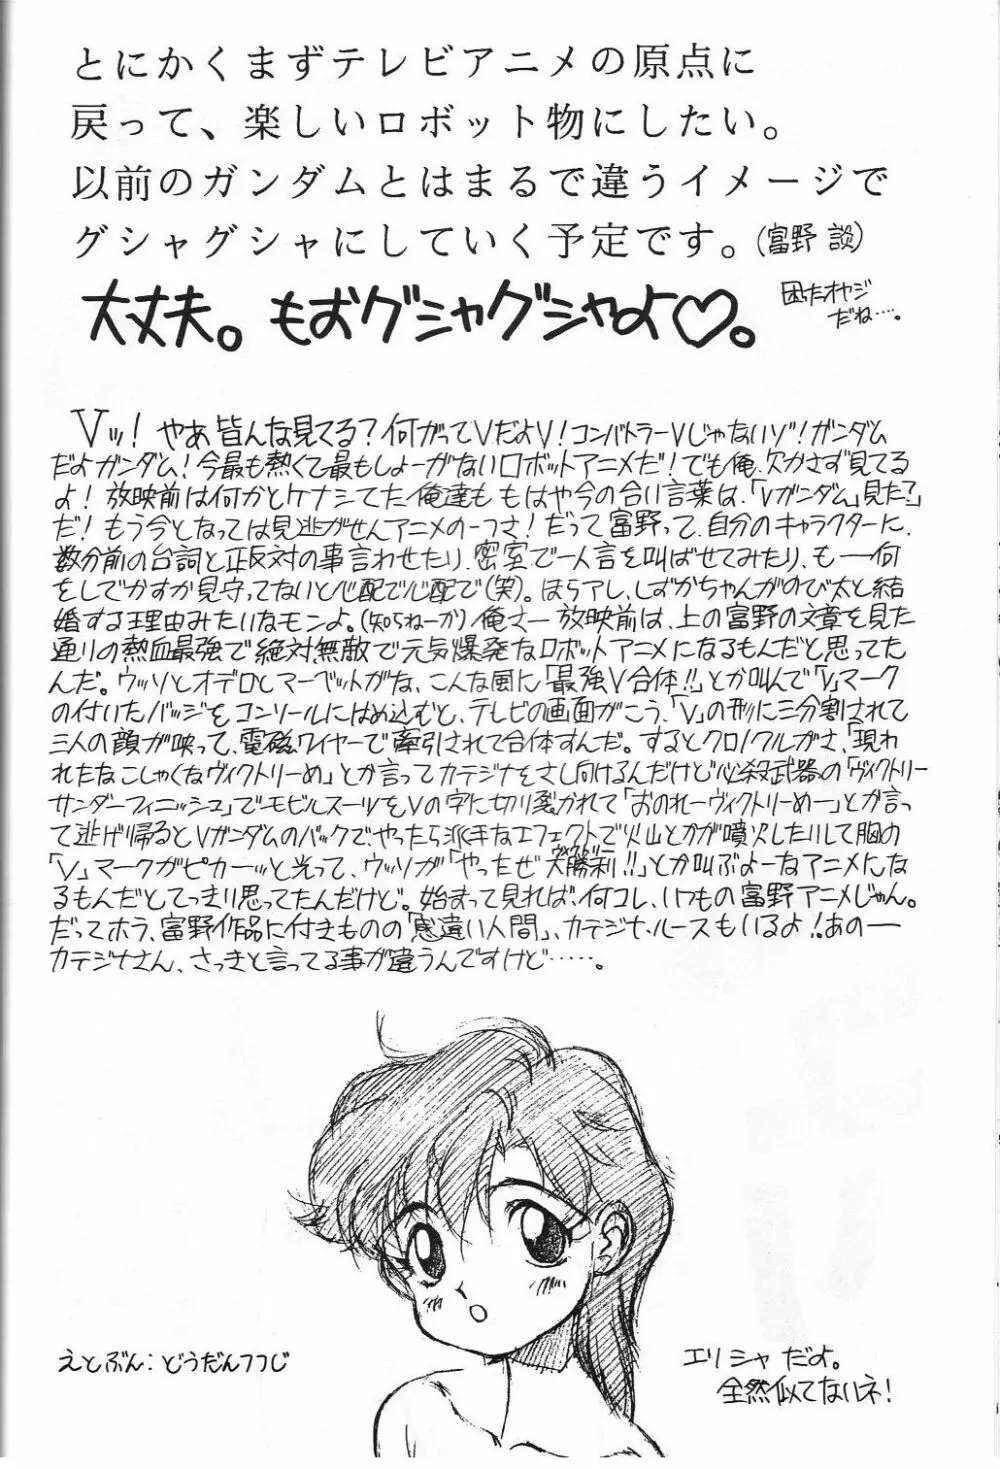 とにかくまずテレビアニメの原点に
戻って、楽しいロボット物にしたい。
以前のガンダムとはまるで違うイメージで
グシャグシャにしていく予定です。(富野 談)
大丈夫。もおグシャグシャよ♡。
困ったオヤジ
だね…。
Vッ! やあ皆んな見てる?何がってVだよV!コンバトラーVじゃないゾ!ガンダム
だよガンダム!今最も熱くて最もしょーがないロボットアニメだ!でも俺、欠かさず見てる
よ!放映前は何かとケナシてた俺達ももはや今の合い言葉は、「Vガンダム」見た?」
だ!もう今となっては見逃がせんアニメの一つさ!だって富野って、自分のキャラクターに、
数分前の台詞と正反対の事言わせたり、密室で一人言を叫ばせてみたり、も──何
をしでかすか見守ってないと心配で心配で(笑)。ほらアレ、しずかちゃんがのび太と結
婚する理由みたいなモンよ。(知らねーか)俺さー放映前は、上の富野の文章を見た
通りの熱血最強で絶対無敵で元気爆発なロボットアニメになるもんだと思ってた
んだ。ウッソとオデロとマーベットがな、こんな風に「最強V合体!!」とか叫んで「V」マーク
の付いたバッジをコンソールにはめ込むと、テレビの画面がこう、「V」の形に三分割されて
三人の顔が映って、電磁ワイヤーで牽引されて合体すんだ。するとクロノクルがさ、「現わ
れたなこしゃくなヴィクトリーめ」とか言ってカテジナをさし向けるんだけど必殺武器の「ヴィクトリー
サンダーフィニッシュ」でモビルスーツをVの字に切り裂かれて「おのれーヴィクトリーめー」とか言っ
て逃げ帰るとVガンダムのバックで、やったら派手なエフェクトで火山とかが噴火したりして胸の
「V」マークがピカーッと光って、ウッソが「やったぜ大勝利!!」とか叫ぶよーなアニメにな
るもんだとてっきり思ってたんだけど。始まって見れば、何コレ、いつもの富野アニメじゃん。
だってホラ、富野作品に付きものの「感違い人間」、カテジナ・ルースもいるよ!あの──
カテジナさん、さっきと言ってる事が違うんですけど……。
えとぶん:どうだんつつじ
エリシャだよ。
全然似てないネ!